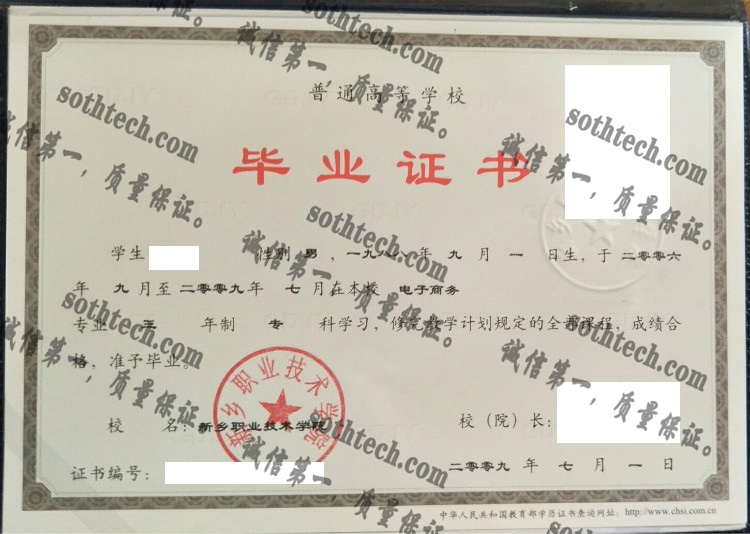 普通高等学校
毕业证书
学生 性别 男 ，一九八八年 九 月 一 日生，于 二〇〇六
年 九 月至 二〇〇九年 七 月在本校 电子商务
专业 三 年制 专 科学习，修完教学计划规定的全部课程，成绩合
格，准予毕业。
新乡职业技术学院
校 名：新乡职业技术学院
校（院）长：
证书编号：
二〇〇九 年 七 月 一 日
中华人民共和国教育部学历证书查询网址：http://www.chsi.com.cn
sothtech.com
诚信第一，质量保证。
sothtech.com
诚信第一，质量保证。
sothtech.com
诚信第一，质量保证。
sothtech.com
诚信第一，质量保证。
sothtech.com
诚信第一，质量保证。
sothtech.com
诚信第一，质量保证。
sothtech.com
诚信第一，质量保证。
sothtech.com